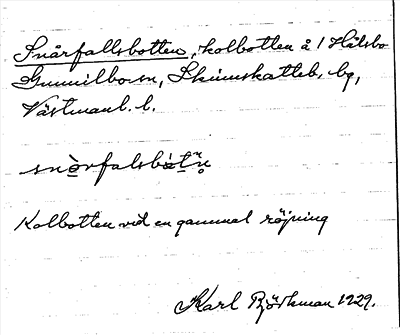 Snårfallsbotten, kolbotten å 1 Hälsbo
Gunnilbo sn, Skinnskatteb. bg,
Västmanl. l.
snòrfalsbàtn̥
Kolbotten vid en gammal röjning
Karl Björkman 1929.